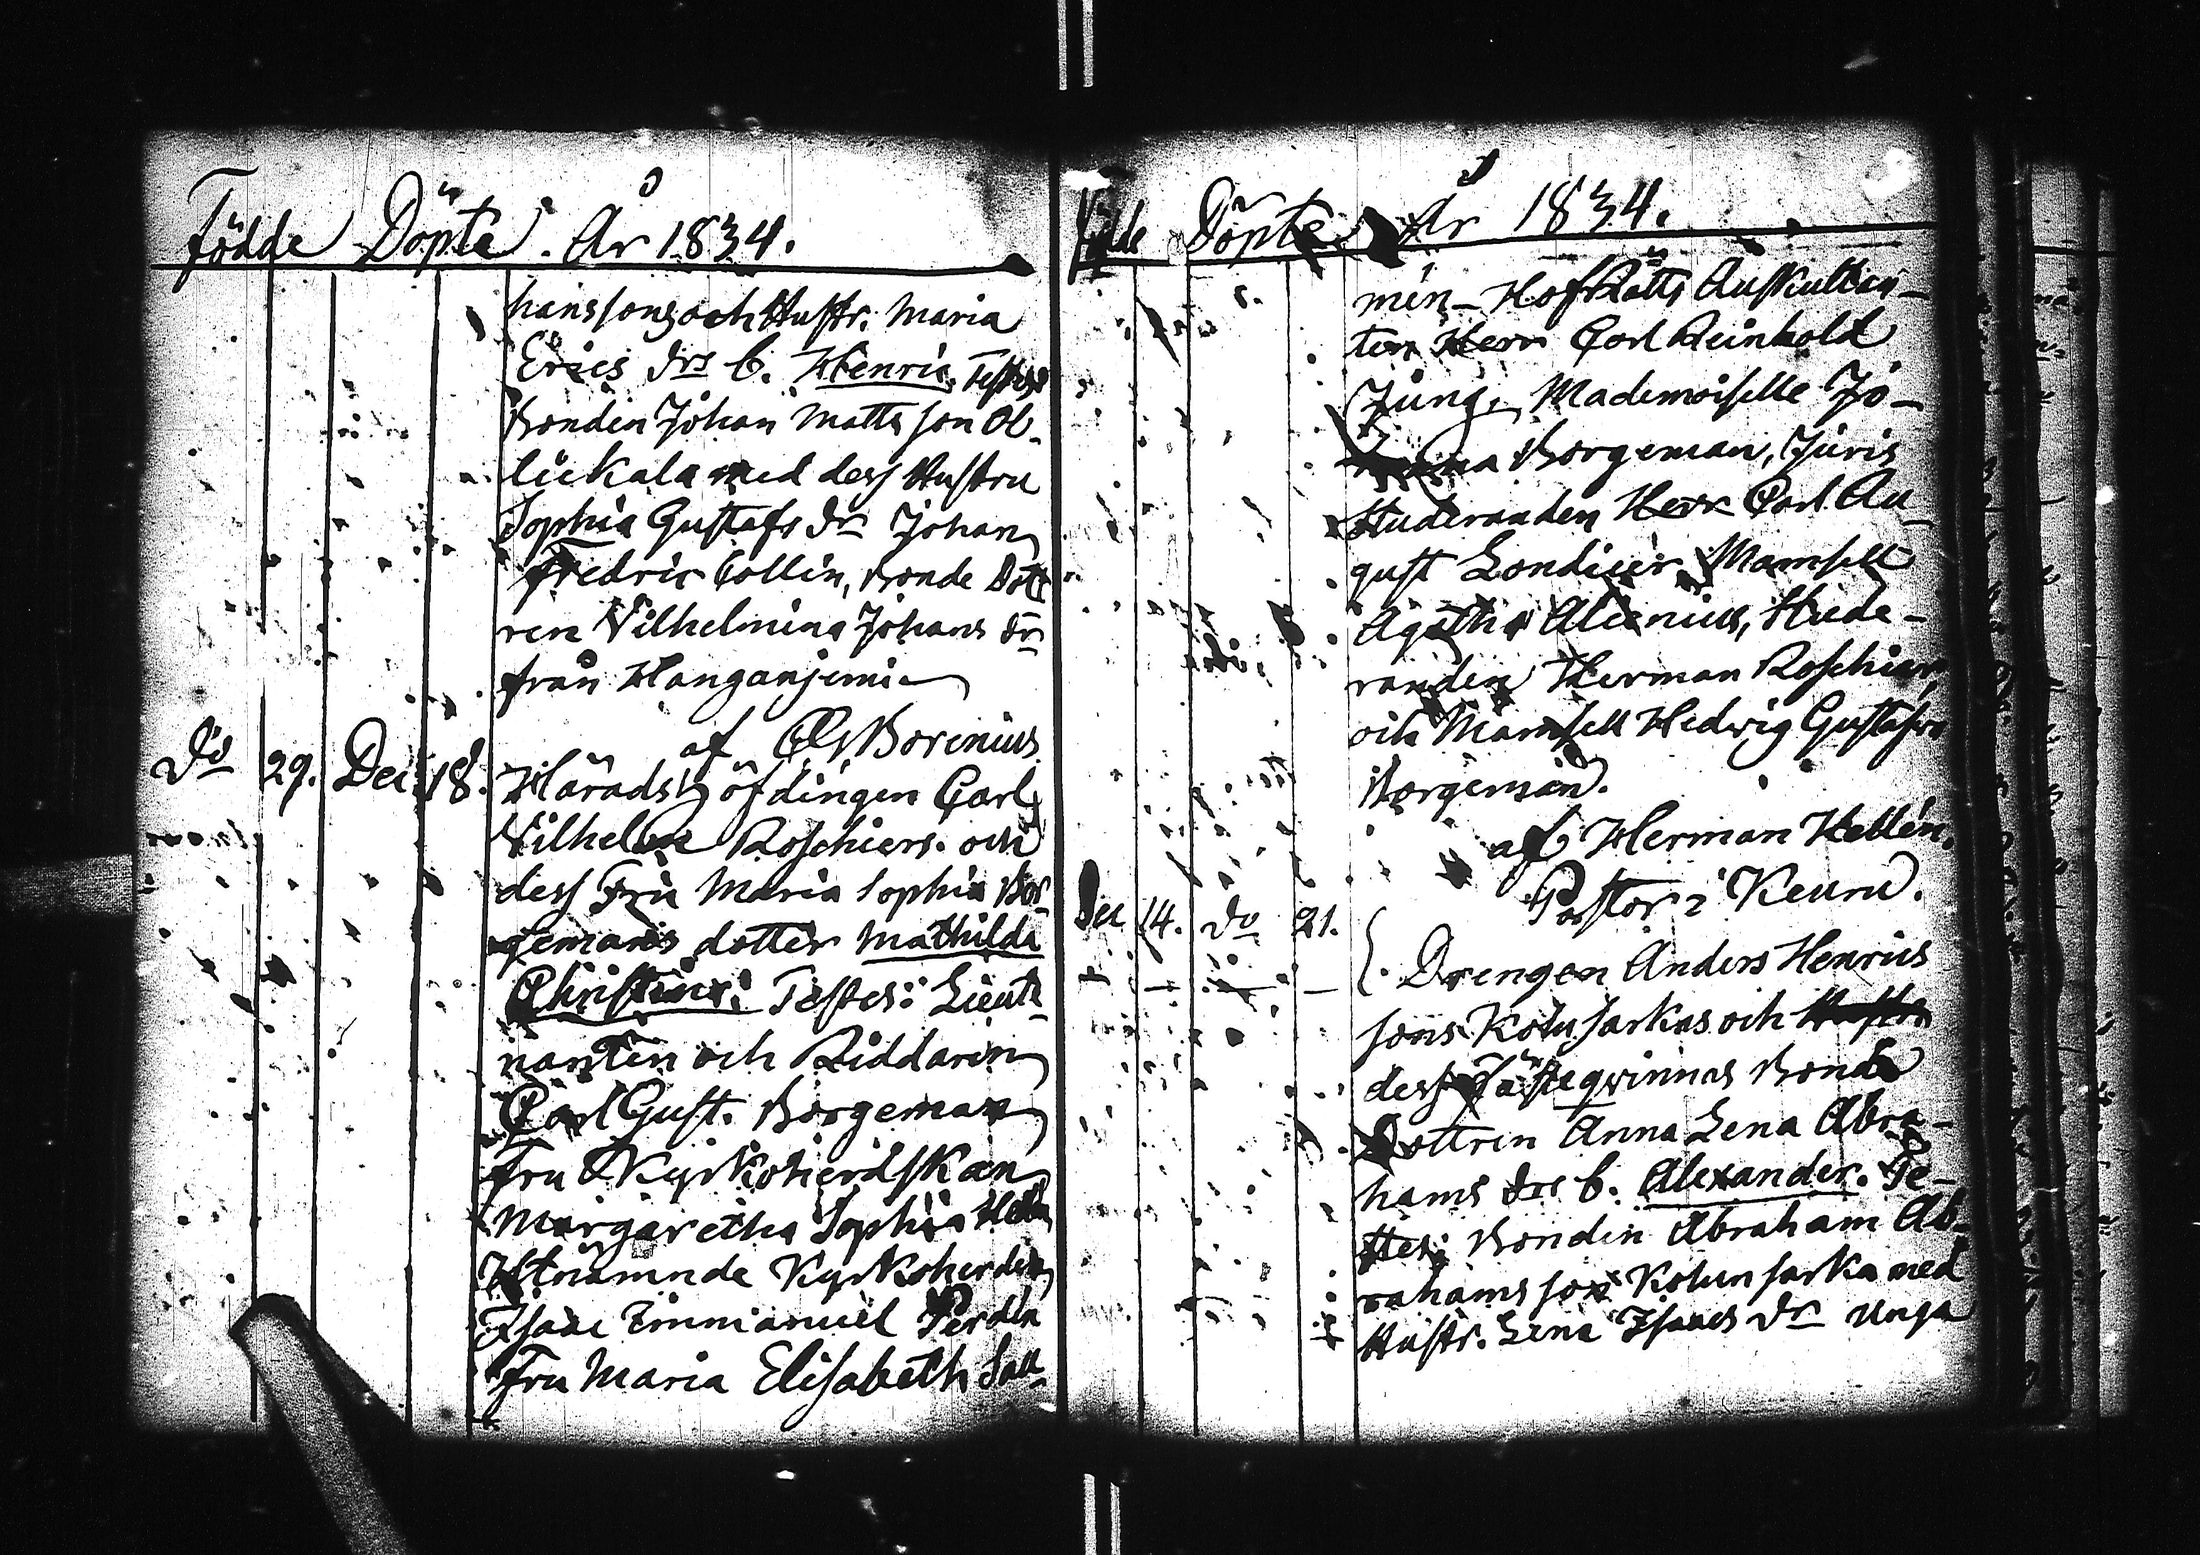 Födde Döpte. År 1834.
hanssons och Hustr. Maria
Erics drs b. Henric. Testes
Bonden Johan Mattsson Ol-
lickala med dess Hustru
Sophia Gustafs dr Johan
Fredric Collin, Bonde Dott
ren Vilhelmina Johans dr
från Hanganjemi
af Borenius
Do 29. Dec. 18. Häradshöfdingen Carl
Vilhelm Roschiers och
dess Fru Maria Sophia Bor-
gemans dotter Mathilda
Christina: Testes: Lieute-
nanten och Riddaren
Carl Gust. Borgeman
Fru Kyrkoherdskan
Margaretha Sophia
Utnämnde Kyrkoherden
Isaac Emmanuel
Fru Maria Elisabeth
Födde Döpte År 1834.
mén_ HofRätts Auskultan-
ten Herr Carl Reinhold
Jung, Mademoiselle Jo-
Borgeman, Juris
Studeranden Herr Carl Au-
gust Londicer Mamsell
Agatha Alcenius, Stude-
randen Herman Roschier,
och Mamsell Hedvig Gustafva
Borgeman.
af Herman Hellén.
Pastor i Keuru.
Dec 14. Do 21. Drengen Anders Henrics
sons Kolu sarkas och Hustr.
dess Fästeqvinnas Bonde
Dottren Anna Lena Abra-
hams drs b. Alexander. Te-
stes: Bonden Abraham Ab-
rahamsson Kolun sarka med
Hustr. Lena Isaacs dr unga